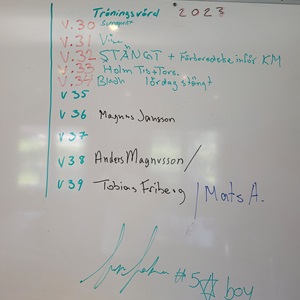 Träningsvärd * 2023
V.30
V.31
V.32 STÄNGT + Förberedelse inför KM
V.33 Holm Tis+Tors.
V.34 Bladh lördag stängt
V 35
V 36 Magnus Jansson
V 37
V 38 Anders Magnusson /
V 39 Tobias Friberg / Mats A.
#5 boy